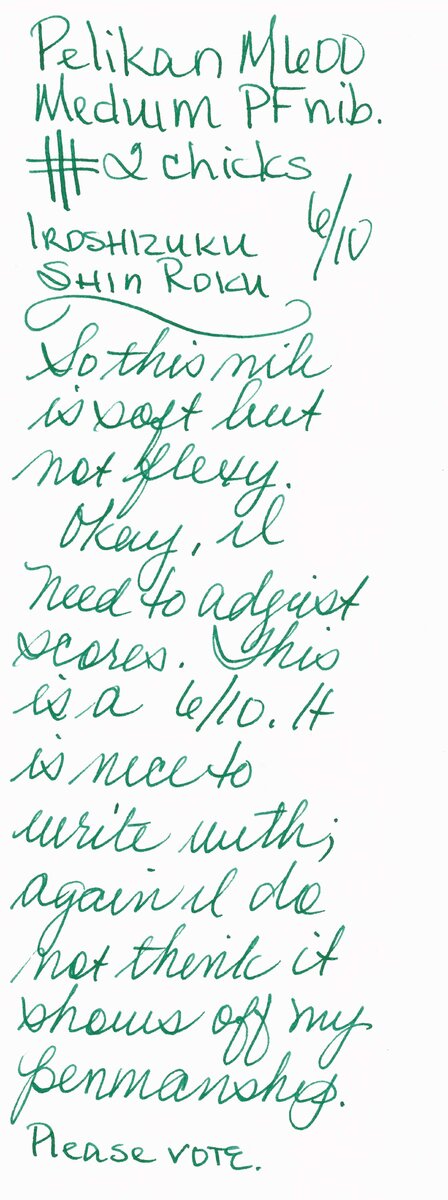 Pelikan M600
Medium PF nib.
#2 chicks
6/10
IROSHIZUKU
SHIN ROKU
So this nib
is soft but
not flexy.
Okay, I
need to adjust
scores. This
is a 6/10. It
is nice to
write with;
again I do
not think it
shows off my
penmanship.
Please vote.